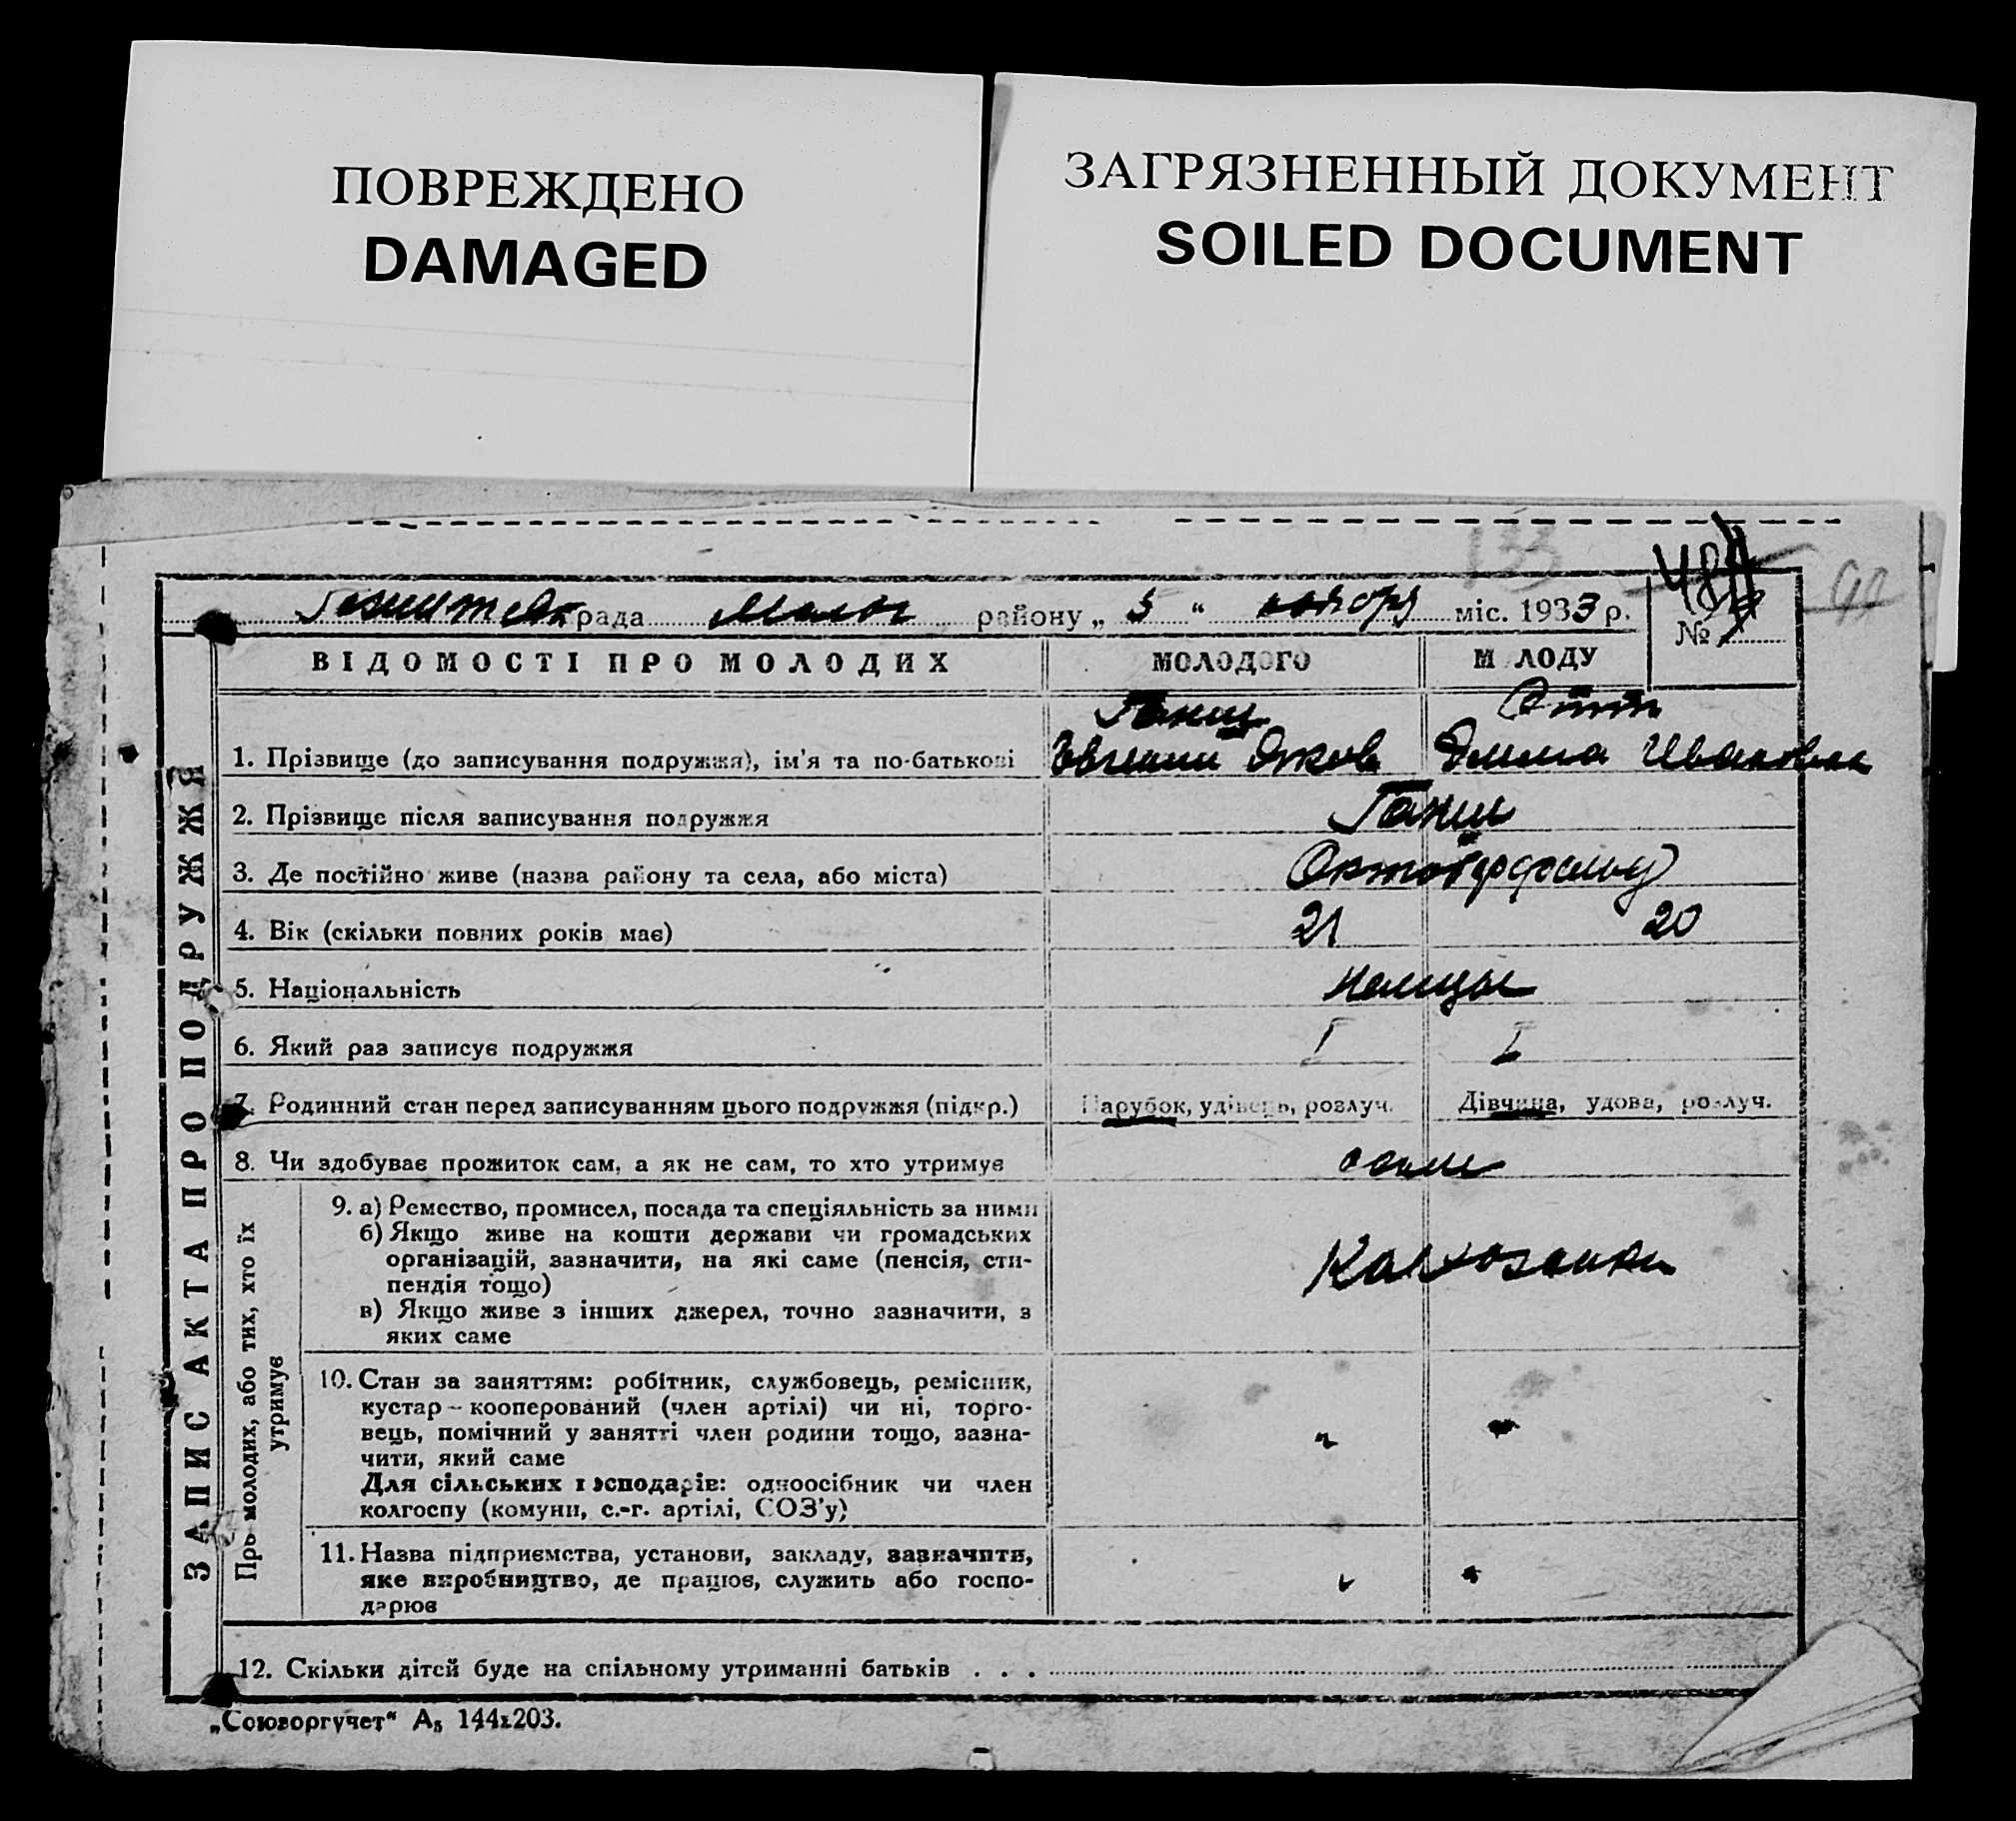 ПОВРЕЖДЕНО
DAMAGED
ЗАГРЯЗНЕННЫЙ ДОКУМЕНТ
SOILED DOCUMENT
133
рада района району „ 5 “ міс. 1933 р.
№
ВІДОМОСТІ ПРО МОЛОДИХ МОЛОДОГО МОЛОДУ
1. Прізвище (до записування подружжя), ім'я та по-батькові
2. Прізвище після записування подружжя
3. Де постійно живе (назва району та села, або міста)
4. Вік (скільки повних років має) 21 20
5. Національність немцы
6. Який раз записує подружжя I I
7. Родинний стан перед записуванням цього подружжя (підкр.) Парубок, удівець, розлуч. Дівчина, удова, розлуч.
8. Чи здобуває прожиток сам, а як не сам, то хто утримує сами
ЗАПИС АКТА ПРО ПОДРУЖЖЯ
Про молодих, або тих, хто їх утримує
9. а) Ремество, промисел, посада та спеціяльність за ними
б) Якщо живе на кошти держави чи громадських
організацій, зазначити, на які саме (пенсія, сти-
пендія тощо)
в) Якщо живе з інших джерел, точно зазначити, з
яких саме
10. Стан за заняттям: робітник, службовець, ремісник,
кустар – кооперований (член артілі) чи ні, торго-
вець, помічний у занятті член родини тощо, зазна-
чити, який саме
Для сільських господарів: одноосібник чи член
колгоспу (комуни, с.-г. артілі, СОЗ'у)
11. Назва підприємства, установи, закладу, зазначити,
яке виробництво, де працює, служить або госпо-
дарює
12. Скільки дітей буде на спільному утриманні батьків . . .
„Союзоргучет“ А₅ 144х203.